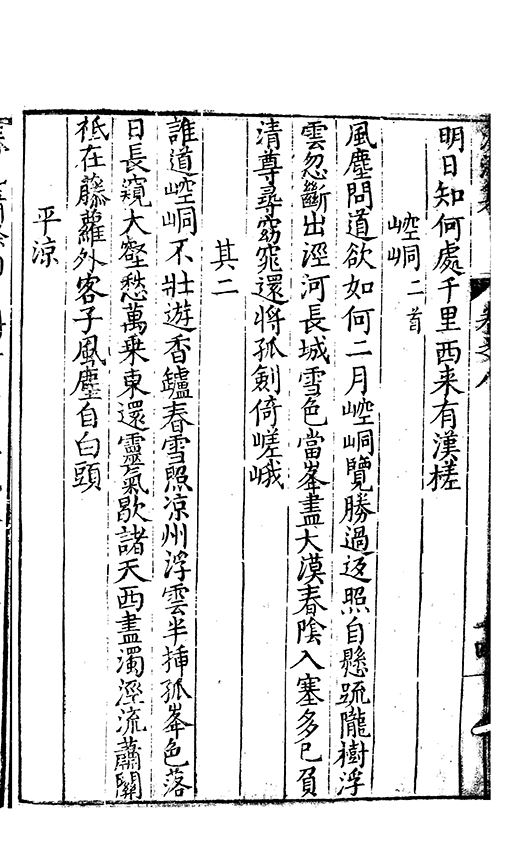 明日知何處千里西来有漢槎
崆峒二首
風塵問道欲如何二月崆峒覽勝過返照自懸疏隴樹浮
雲忽斷出涇河長城雪色當峯盡大漠春陰入塞多已負
清尊尋窈窕還將孤劍倚嵯峨
其二
誰道崆峒不壯遊香鑪春雪照凉州浮雲半揷孤峯色落
日長窺大壑愁萬乗東還靈氣歇諸天西盡濁涇流蕭關
祗在藤蘿外客子風塵自白頭
平涼